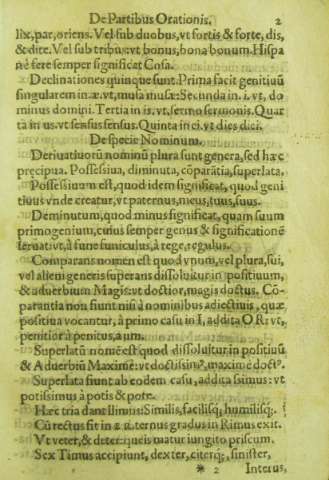 De Partibus Orationis. 2
lix, par, oriens. Vel sub duobus, vt fortis & forte, dis,
& dite. Vel sub tribus: vt bonus, bona bonum. Hispa
nè fere semper significat Cosa.
Declinationes quinque sunt. Prima facit genitiuũ
singularem in æ. vt, musa musæ: Secunda in. i. vt, do
minus domini. Tertia in is. vt, sermo sermonis. Quar
ta in us. vt sensus sensus. Quinta in ei. vt dies diei.
De specie Nominum.
Deriuatiuorũ nominũ plura sunt genera, sed hæc
præcipua. Possessiua, diminuta, cõparãtia, superlata.
Possessiuum est, quod idem significat, quod geni
tiuus vnde creatur, vt paternus, meus, tuus, suus.
Deminutum, quod minus significat, quam suum
primogenium, cuius semper genus & significationẽ
seruat vt, à fune funiculus, à rege, regulus.
Comparans nomen est quod vnum, vel plura, sui,
vel alieni generis superans dissoluitur in positiuum,
& aduerbium Magis: vt doctior, magis doctus. Cõ-
parantia non fiunt nisi à nominibus adiectiuis, quæ
positiua vocantur, à primo casu in I, addita OR: vt,
penitior à penitus, a um.
Superlatũ nomẽ est quod dissoluitur in positiuũ
& Aduerbiũ Maximè: vt doctissimꝰ, maximè doctꝰ.
Superlata fiunt ab eodem casu, addita ssimus: vt
potissimus à potis & pote.
Hæc tria dant llimus: Similis, facilisq;, humilisq;.
Cũ rectus fit in R. alternus gradus in Rimus exit.
Vt veter, & deter: queis matur iungito priscum.
Sex Timus accipiunt, dexter, citerq;, sinister,
* 2 Interus,